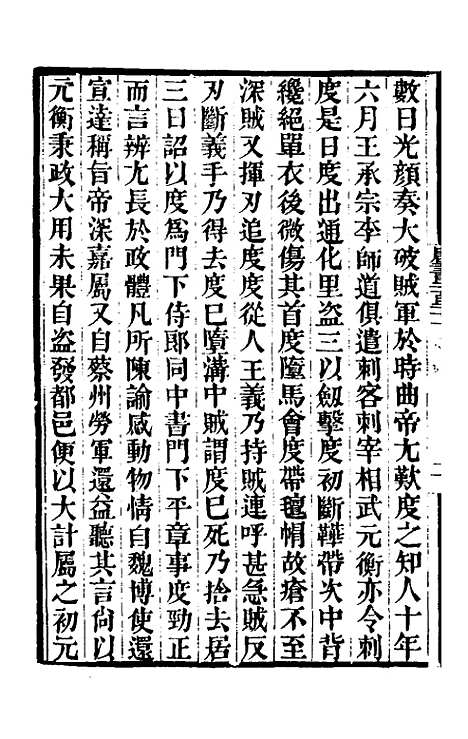 數日光顔奏大破賊軍於時曲帝尤歎度之知人十年
六月王承宗李師道俱遣刺客刺宰相武元衡亦令刺
度是日度出通化里盜三以劒擊度初斷鞾帶次中背
纔絕單衣後微傷其首度墮馬會度帶氊帽故瘡不至
深賊又揮刃追度度從人王義乃持賊連呼甚急賊反
刃斷義手乃得去度已墮溝中賊謂度已死乃捨去居
三日詔以度爲門下侍郎同中書門下平章事度勁正
而言辨尤長於政體凡所陳諭感動物情自魏博使還
宣達稱旨帝深嘉屬又自蔡州勞軍還益聽其言尙以
元衡秉政大用未果自盜發都邑便以大計屬之初元